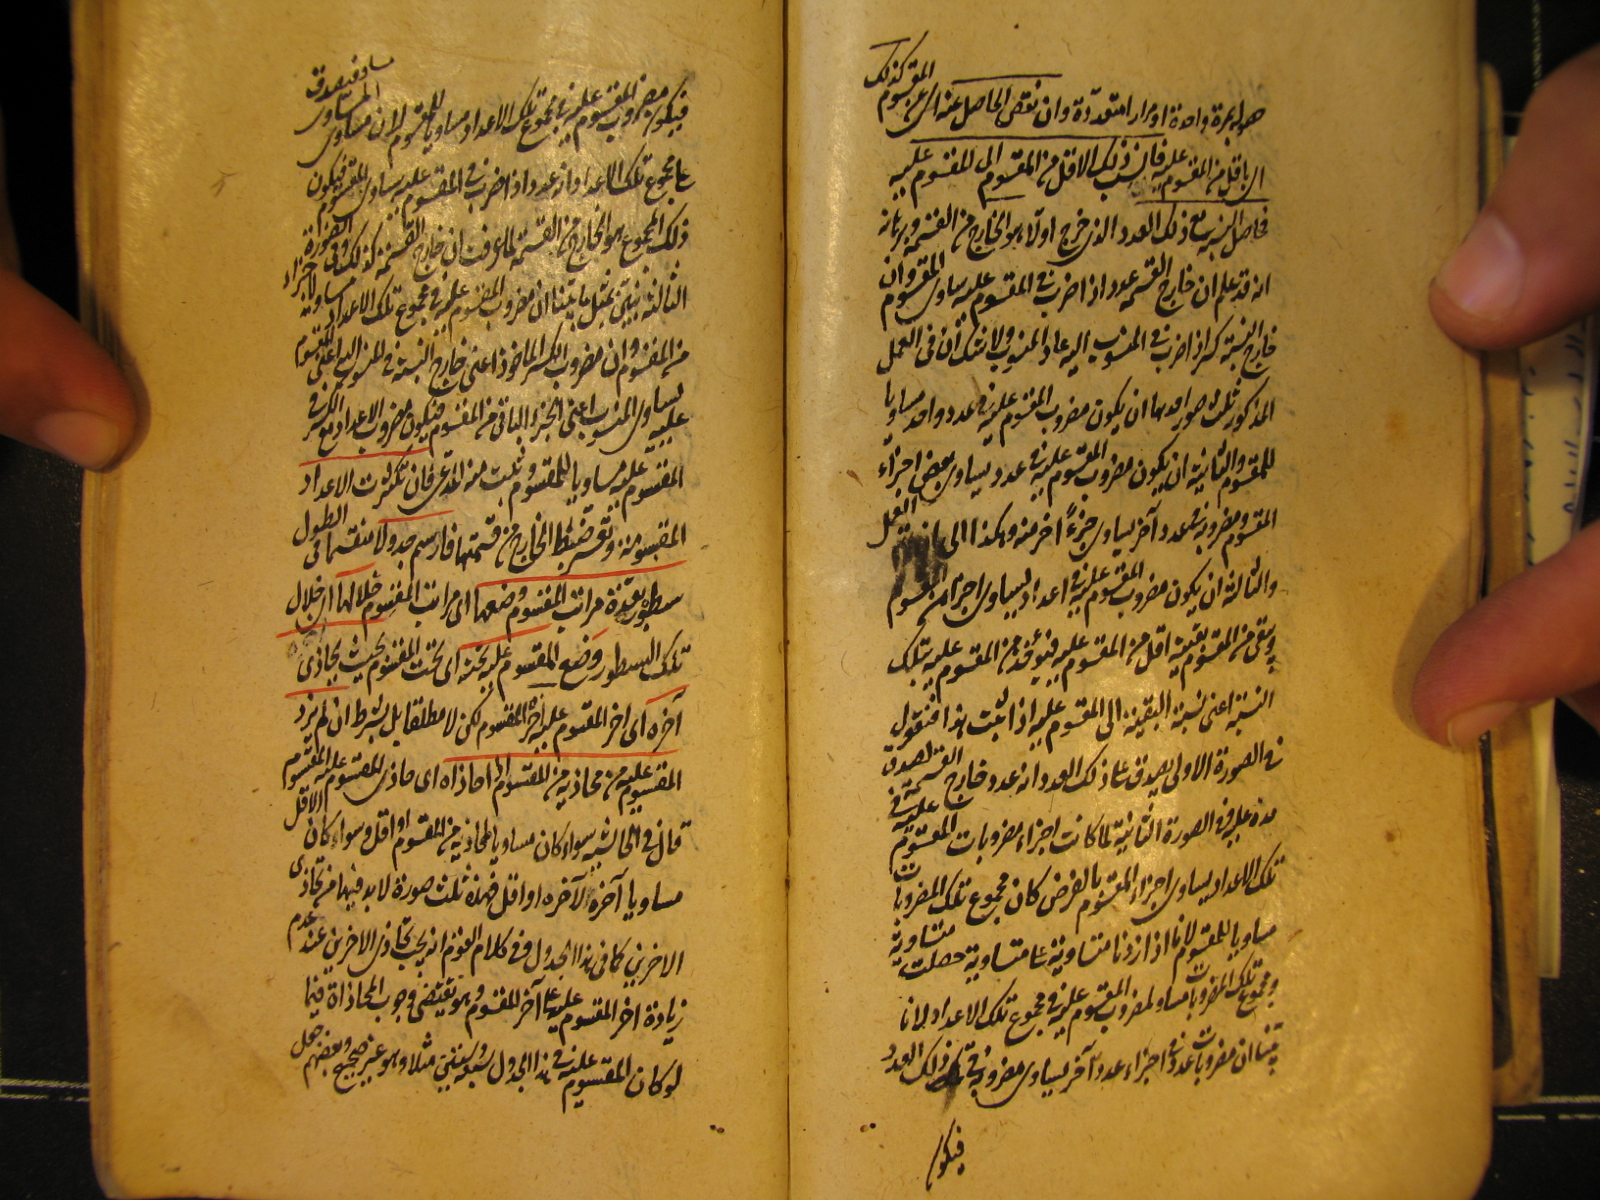 هو له بمرة واحدة او مرارا متعددة وان نقص الحاصل عنه اى عن المقسوم كذلك
اى باقل من المقسوم عليه فانسب ذلك الاقل من المقسوم الى المقسوم عليه
فحاصل النسبة مع ذلك العدد الذى خرج اولا هو الخارج من القسمة وبرهانه
انه قد علم ان خارج القسمة عدد اذا ضرب فى المقسوم عليه ساوى المقسوم وان
خارج النسبة كسر اذا ضرب فى المنسوب اليه عاد المنسوب ولا شك ان فى العمل
المذكور ثلث صور احدها ان يكون مضروب المقسوم عليه فى عدد واحد مساويا
للمقسوم والثانية ان يكون مضروب المقسوم عليه فى عدد يساوى بعض اجزاء
المقسوم ومضروبه فى عدد آخر يساوى جزءً آخر منه وهكذا الى العمل
والثالثة ان يكون مضروب المقسوم عليه فى اعداد يساوى اجزاء من المقسوم
ويبقى من المقسوم بقية اقل من المقسوم عليه فيؤخذ من المقسوم عليه بتلك
النسبة اعنى نسبة البقية الى المقسوم عليه اذا ثبت هذا فنقول
فى الصورة الاولى يصدق على ذلك العدد انه عدد خارج القسمة لصدق
حده عليه وفى الصورة الثانية لما كانت اجزاء مضروبات المقسوم عليه فى
تلك الاعداد يساوى اجزاء المقسوم بالفرض كان مجموع تلك المضروبات
مساويا للمقسوم لانا اذا زدنا متساوية على متساوية حصلت متساوية
ومجموع تلك المضروبات مساو لمضروب المقسوم عليه فى مجموع تلك الاعداد لانا
بينا ان مضروبات عدد فى اجزاء عدد آخر يساوى مضروبه فى ذلك العدد
فيكون
فيكون مضروب المقسوم عليه فى مجموع تلك الاعداد مساويا للمقسوم لان مساوى المساوى مساو فيصدق
على مجموع تلك الاعداد انه عدد اذا ضرب فى المقسوم عليه يساوى المقسوم فيكون
ذلك المجموع هو الخارج من القسمة لما عرفت ان خارج القسمة كذلك وفى الصورة
الثالثة نبين بمثل ما بينا ان مضروب المقسوم عليه فى مجموع تلك الاعداد مساوية لاجزاء
من المقسوم وان مضروب الكسر الماخوذ اعنى خارج النسبة فى المنسوب اليه اعنى المقسوم
عليه يساوى المنسوب اعنى الجزء الباقى من المقسوم فيكون مضروب الاعداد مع الكسر فى
المقسوم عليه مساويا للمقسوم وثبت منه المدعى فان تكثرت الاعداد
المقسومة وتعسر ضبط الخارج من قسمتها فارسم جدولا منقسما فى الطول
سطوره بعدة مراتب المقسوم وضعها اى مراتب المقسوم خلالها اى خلال
تلك السطور وضع المقسوم عليه تحته اى تحت المقسوم بحيث يحاذى
آخره اى اخر المقسوم عليه آخره اى آخر المقسوم لكن لا مطلقا بل بشرط ان لم يزد
المقسوم عليه من محاذيه من المقسوم اذا حاذاه اى حاذى المقسوم عليه المقسوم
قال فى الحاشية سواء كان مساويا لمحاذيه من المقسوم او اقل وسواء كان الاقل
مساويا آخره لآخره او اقل فهذه ثلث صورة لا بد فيها من تحاذى
الاخرين كما فى هذا الجدول وفى كلام القوم انه يجب تحاذى الاخرين عند عدم
زيادة اخر المقسوم عليه على آخر المقسوم وهو يقتضى وجوب المحاذاة فيما
لو كان المقسوم عليه فى هذا الجدول سبعة وستين مثلا وهو غير صحيح وبعضهم جعل